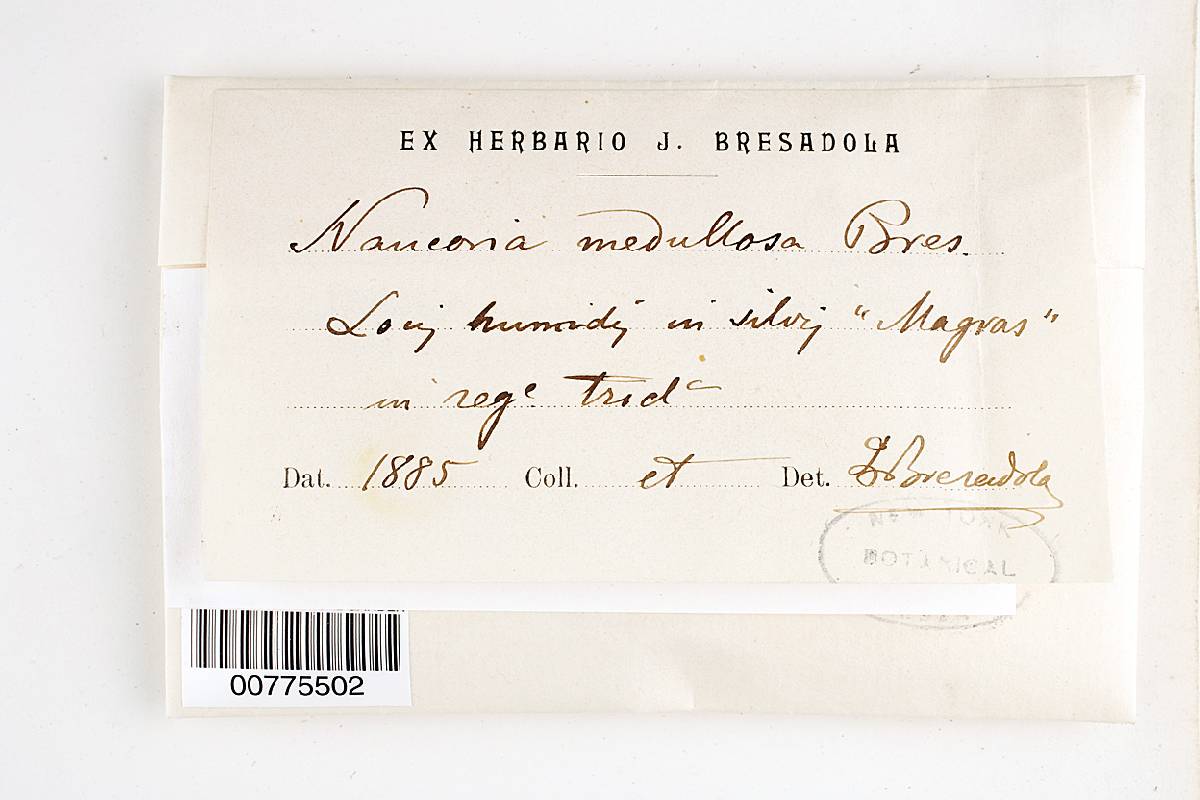 EX HERBARIO J. BRESADOLA
Naucoria medullosa Bres.
Locij humidij in silvij "Magras"
in rege. tridc
Dat. 1885 Coll. et Det. J Bresadola
NEW YORK
BOTANICAL
00775502